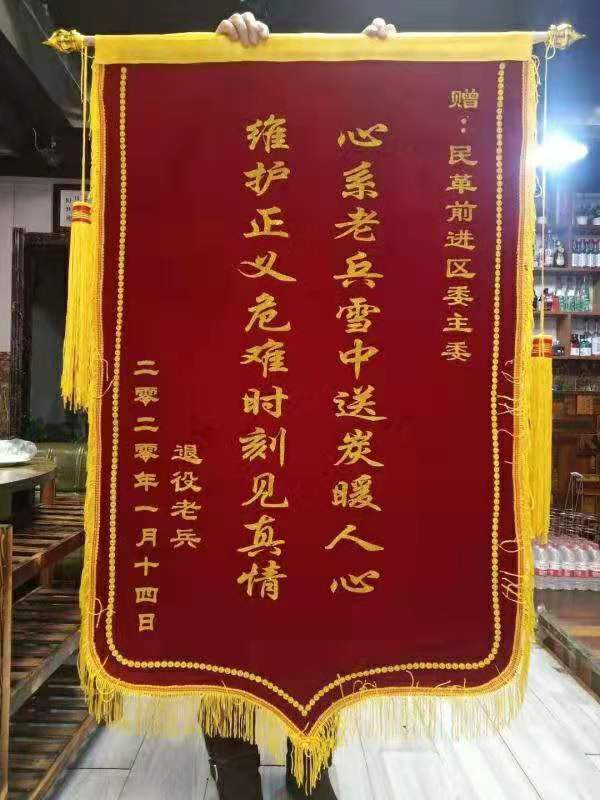 赠：民革前进区委主委
心系老兵雪中送炭暖人心
维护正义危难时刻见真情
退役老兵
二零二零年一月十四日